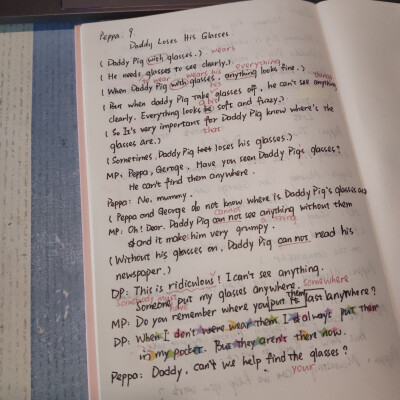 Peppa. 9.
Daddy Loses His Glasses.
( Daddy Pig with glasses. ) wears
( He needs glasses to see clearly. )
wear wears his everything
( When Daddy Pig with glasses. anything looks fine. )
his things
( But when daddy Pig take glasses off, he can't see anything
clearly. Everything looks soft and fuzzy. )
( So It's very important for Daddy Pig know where's the
glasses are. ) that
( Sometimes, Daddy Pig loses his glasses. )
MP: Peppa, Geroge. Have you seen Daddy Pig's glasses?
He can't find them anywhere.
Peppa: No, mummy.
( Peppa and George do not know where is Daddy Pig's glasses are)
cannot
MP: Oh! Dear. Daddy Pig can not see anything without them
and it make him very grumpy.
(Without his glasses on, Daddy Pig can not read his
newspaper.)
DP: This is ridiculous! I can't see anything.
somebody must have somewhere
Someone put my glasses anywhere.
them
MP: Do you remember where you put its last anywhere?
DP: When I don't wear them I always put them
in my pocket. But they aren't there now.
Peppa: Daddy, can't we help find the glasses?
your